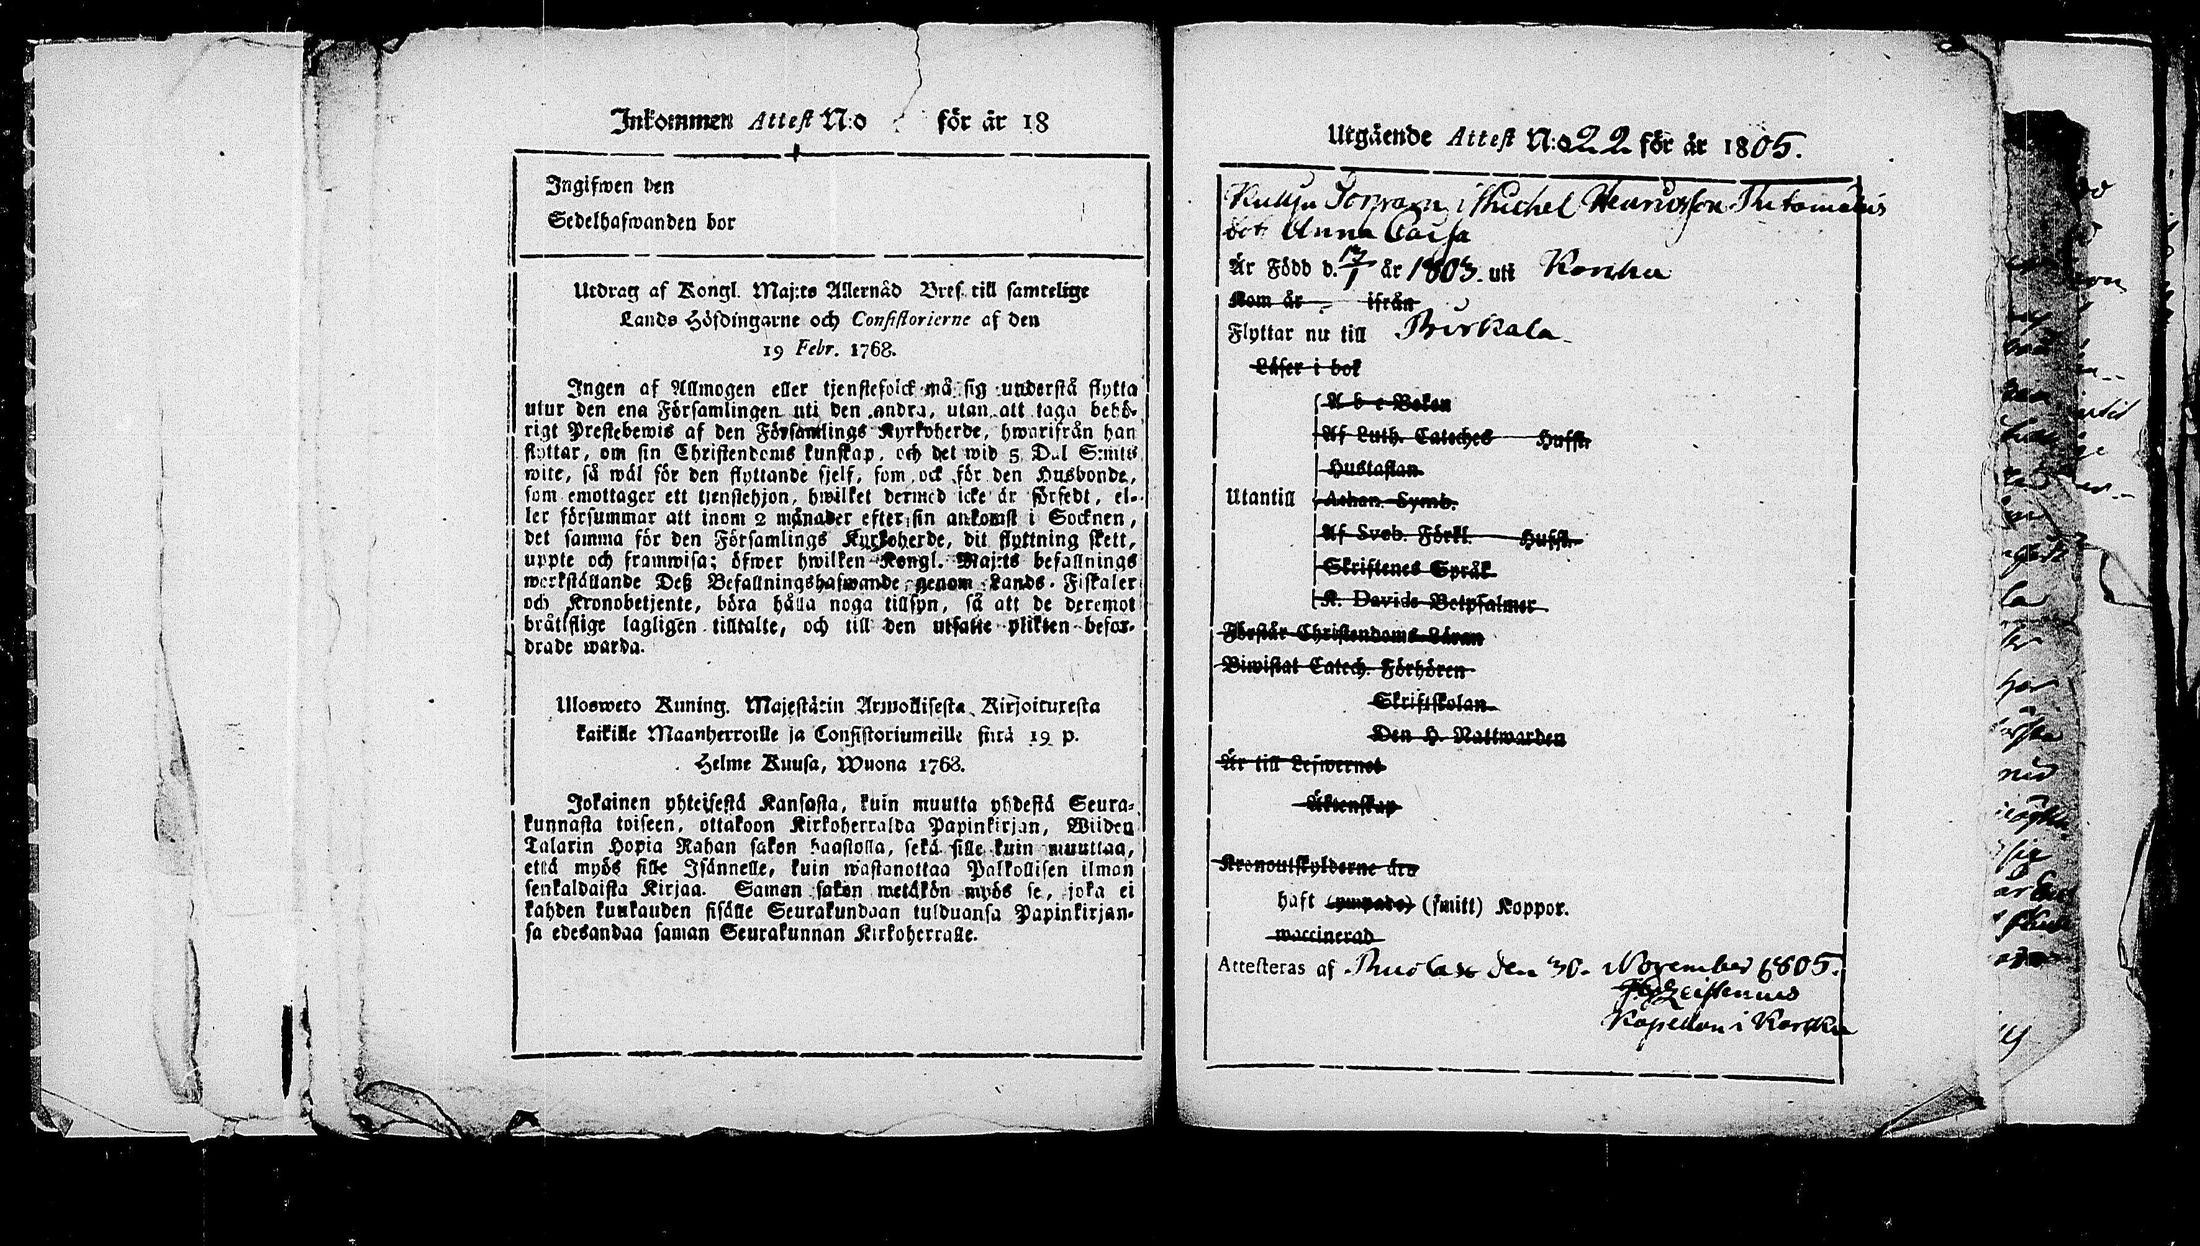 Inkommen Attest N:o för år 18
Ingifwen den
Sedelhafwanden bor
Utdrag af Kongl. Maj:ts Allernåd Bref till samtelige
Lands Höfdingarne och Consistorierne af den
19 Febr. 1768.
Ingen af Allmogen eller tjenstefolck må sig understå flytta
utur den ena Församlingen uti den andra, utan att taga behö-
rigt Prestebewis af den Församlings Kyrkoherde, hwarifrån han
flyttar, om sin Christendoms kunskap, och det wid 5 Dal S:mts
wite, så wäl för den flyttande sjelf, som ock för den Husbonde,
som emottager ett tjenstehjon, hwilket dermed icke är försedt, el-
ler försummar att inom 2 månader efter sin ankomst i Socknen,
det samma för den Församlings Kyrkoherde, dit flyttning skett,
uppte och framwisa; öfwer hwilken Kongl. Maj:ts befallnings
werkställande Deß Befallningshafwande genom Lands-Fiskaler
och Kronobetjente, böra hålla noga tillsyn, så att de deremot
brätslige lagligen tilltalte, och till den utsatte plikten befor-
drade warda.
Ulosweto Kuning. Majestätin Armollisesta Kirjoituxesta
kaikille Maanherroille ja Consistoriumeille siitä 19 p.
Helme Kuusa, Wuona 1768.
Jokainen yhteisestä Kansasta, kuin muutta yhdestä Seura-
kunnasta toiseen, ottakoon Kirkoherralda Papinkirjan, Wiiden
Talarin Hopia Rahan sakon haastolla, sekä sille kuin muuttaa,
että myös sille Isännelle, kuin wastanottaa Palkollisen ilman
senkaldaista Kirjaa. Saman sakon wetäkön myös se, joka ei
kahden kuukauden sisälle Seurakundaan tulduansa Papinkirjan-
sa edesandaa saman Seurakunnan Kirkoherralle.
Utgående Attest N:o 22 för år 1805.
Michel Henricsson
dot Anna Caisa
Är Född d. 17/1 år 1803. uti Korcku
Kom år ifrån
Flyttar nu till Birkala
Läser i bok
A b c Boken
Af Luth. Cateches Hufst.
Hustaflan
Utantill Athan. Symb.
Af Sveb. Förkl. Hufst.
Skriftenes Språk
K. Davids Botpsalmer
Förstår Christendoms Läran
Biwistat Catech. Förhören
Skriftskolan
Den H. Nattwarden
Är till Lefwernet
Äktenskap
Kronoutskylderne äro
haft (ympade) (smitt) Koppor.
waccinerad
Attesteras af den 30. November 1805.
Kapellan i Korcku